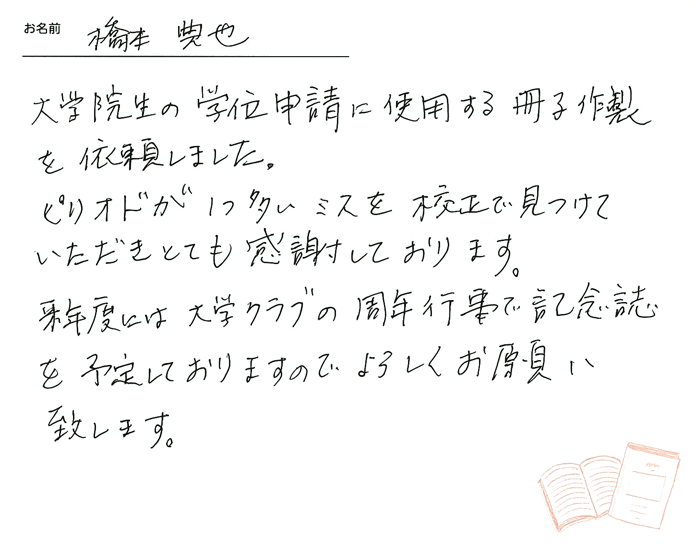 お名前 橋本 典也
大学院生の学位申請に使用する冊子作製
を依頼しました。
ピリオドが1つ多いミスを校正で見つけて
いただきとても感謝しております。
来年度には大学クラブの周年行事で記念誌
を予定しておりますのでよろしくお願い
致します。